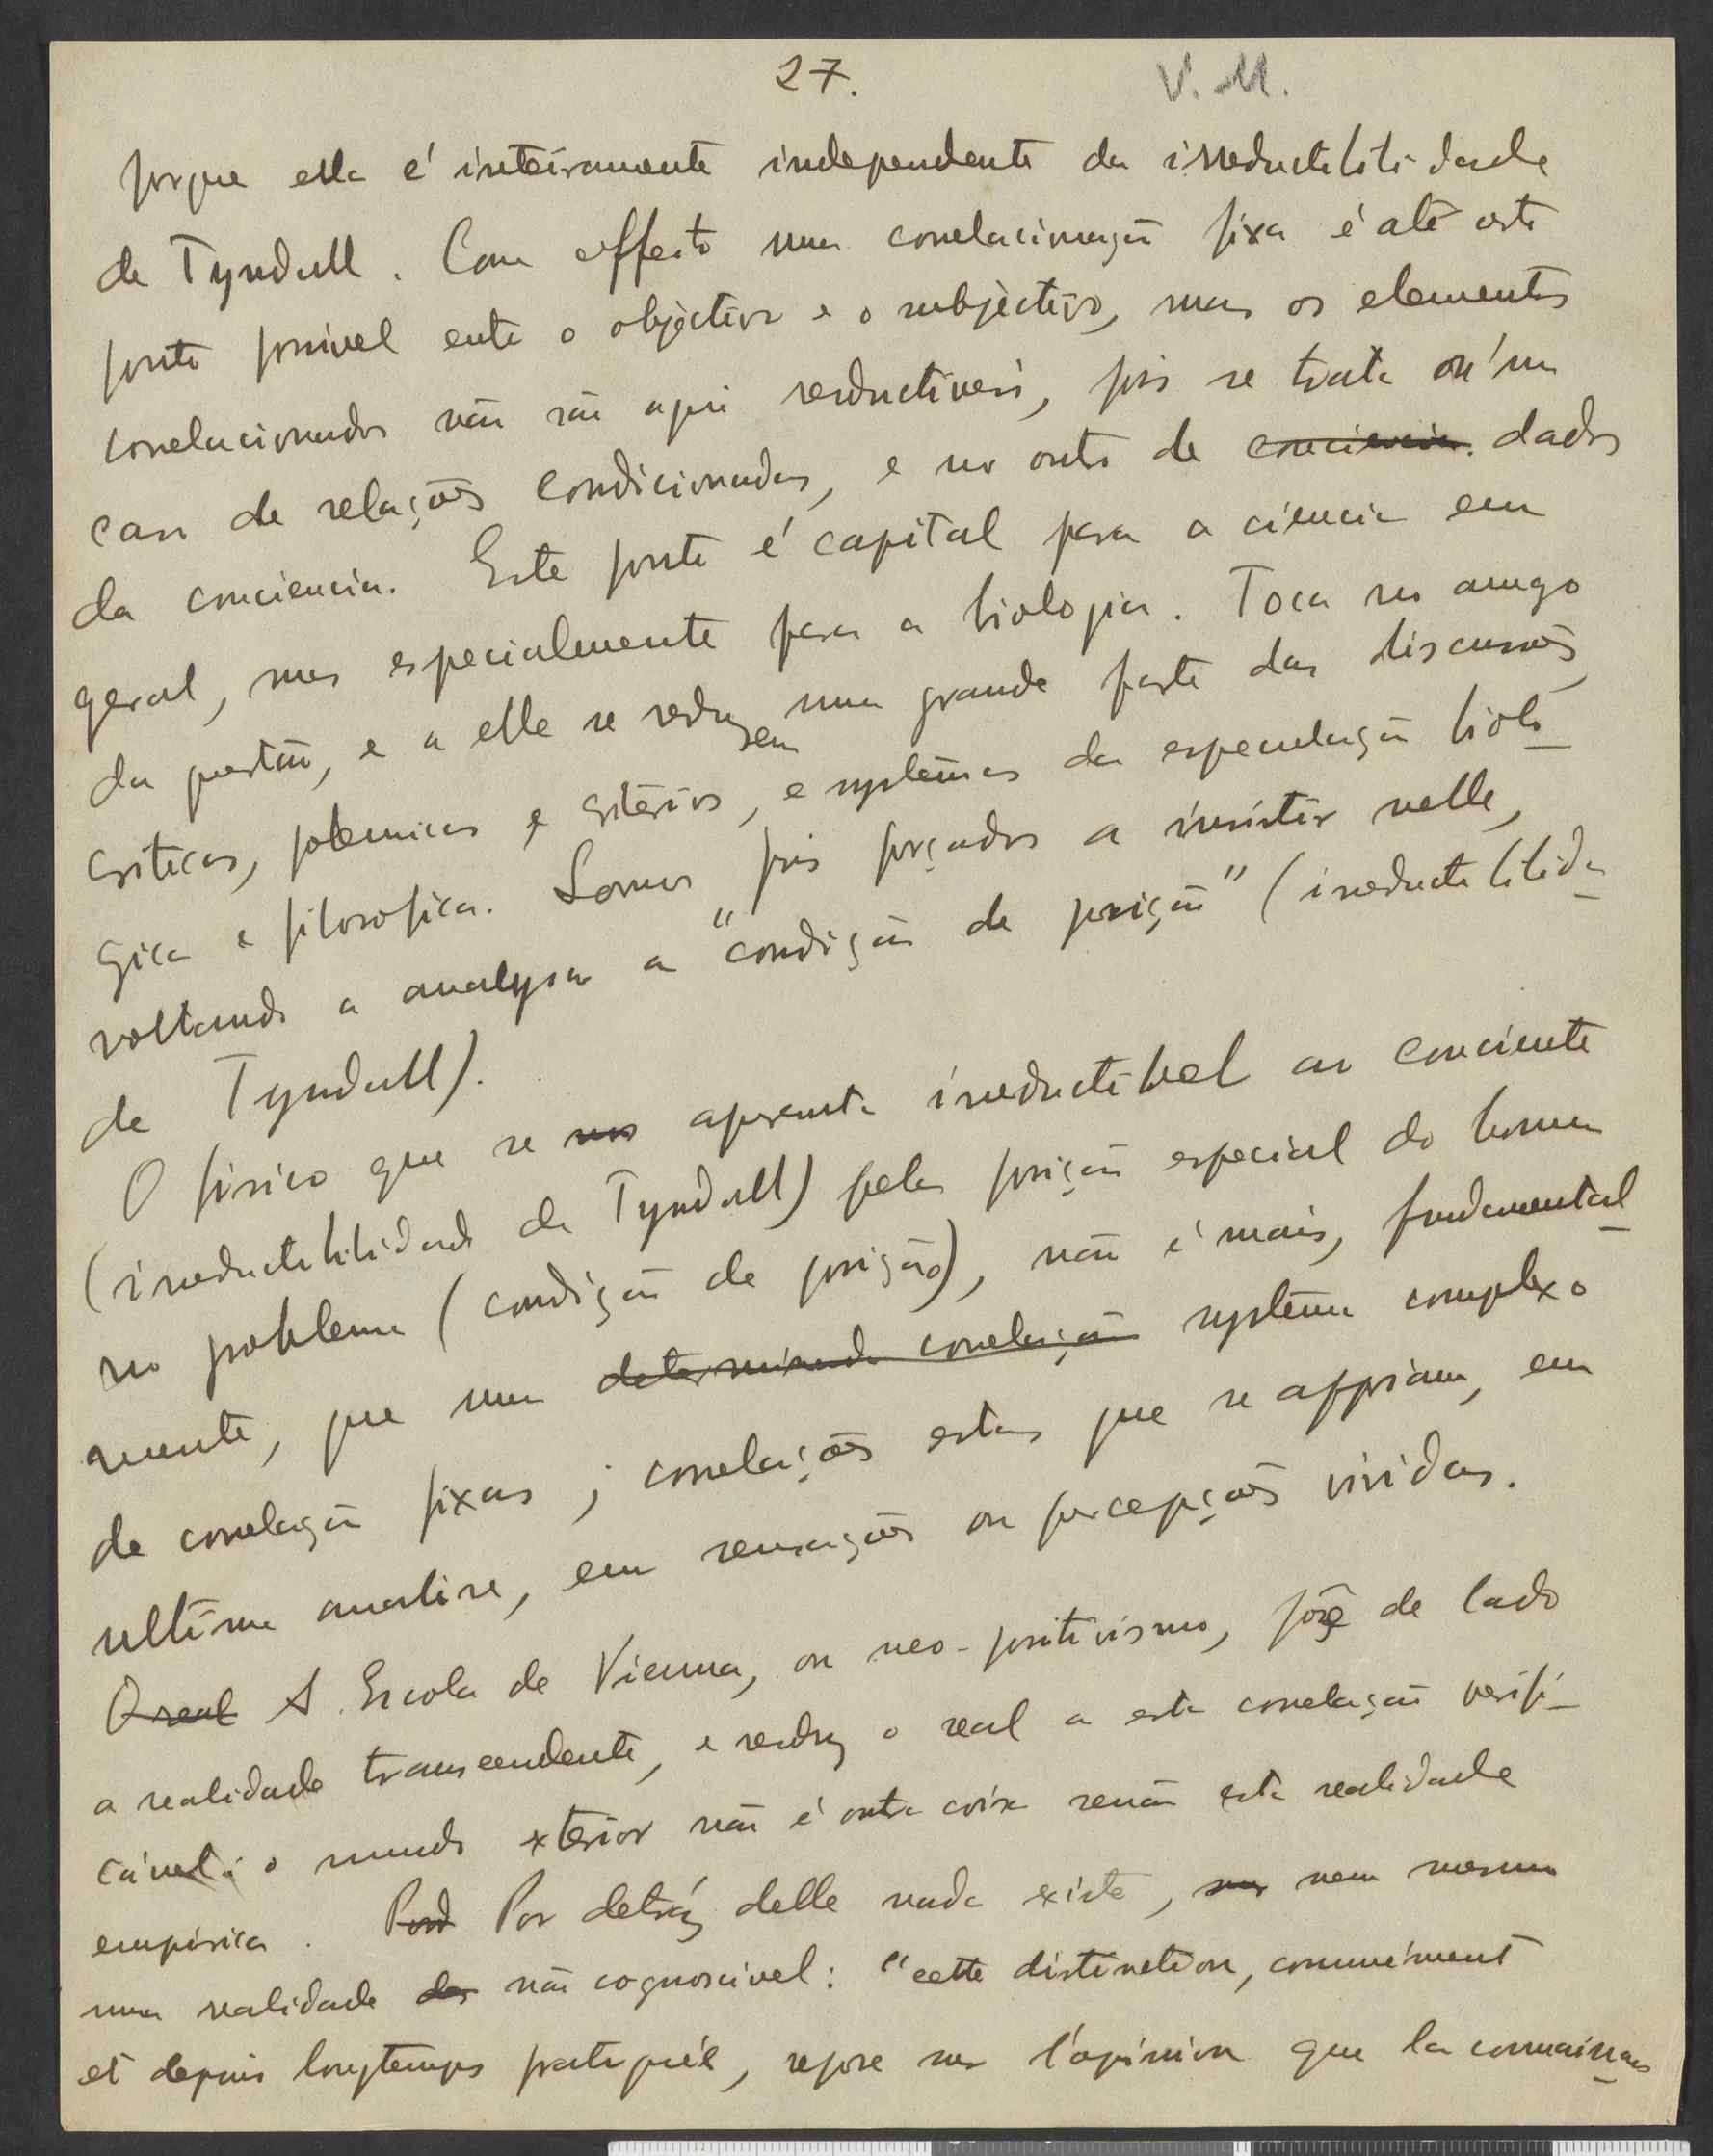 27. V. M.
porque ella é inteiramente independente da irreductibilidade
de Tyndall. Com effeito uma correlacionação fixa é até este
ponto possivel entre o objèctivo e o subjèctivo, mas os elementos
correlacionados não são aqui reductiveis, pois se trata n'um
caso de relações condicionadas, e no outro de conciencia dados
da conciencia. Este ponto é capital para a ciencia em
geral, mas especialmente para a biologia. Toca no amago
da questão, e a elle se reduzem uma grande parte das discussões,
criticas, polemicas e critérios, e systemas da especulação bioló
gica e filosofica. Somos pois forçados a insistir nelle,
voltando a analysar a "condição de posição" (irreductibilida
de Tyndall).
O fisico que se nos apresenta irreductibel ao conciente
(irreductibilidade de Tyndall) pela posição especial do homem
no problema (condição de posição), não é mais, fundamental
mente, que uma determinada correlação systema complexo
de correlação fixas; correlações estas que se appoiam, em
ultima analise, em sensações ou percepções vividas.
O real A Escola de Vienna, ou neo-positivismo, põe de lado
a realidade transcendente, e reduz o real a esta correlação verifi-
cável: o mundo exterior não é outra coisa senão esta realidade
empirica. Por Por detráz delle nada existe, nem mesmo
uma realidade não cognoscivel: "cette distinction, communément
et depuis longtemps pratiquée, repose sur l'opinion que la connaissan